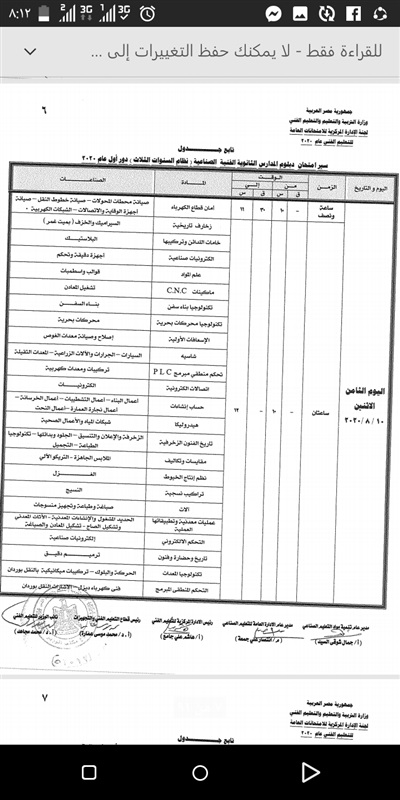 ٨:١٢
للقراءة فقط - لا يمكنك حفظ التغييرات إلى ...
جمهورية مصر العربية
وزارة التربية والتعليم والتعليم الفني
لجنة الإدارة المركزية للامتحانات العامة
للتعليم الفني عام ٢٠٢٠
٦
تابع جدول
سير امتحان دبلوم المدارس الثانوية الفنية الصناعية ؛ نظام السنوات الثلاث ؛ دور أول عام ٢٠٢٠
اليوم والتاريخ
الزمن
الوقت
من
إلى
ق
س
ق
س
المادة
الصناعات
اليوم الثامن
الاثنين
٢٠٢٠/٨/١٠
ساعة ونصف
– ١٠ ٣٠ ١١
أمان قطاع الكهرباء
صيانة محطات المحولات – صيانة خطوط النقل – صيانة أجهزة الوقاية والاتصالات – الشبكات الكهربية
ساعتان
– ١٠ – ١٢
زخارف تاريخية
السيراميك والخزف (بميت غمر)
خامات اللدائن وتركيبها
البلاستيك
إلكترونيات صناعية
أجهزة دقيقة وتحكم
علم المواد
قوالب واسطمبات
ماكينات C.N.C
تشغيل المعادن
تكنولوجيا بناء سفن
بناء السفن
تكنولوجيا محركات بحرية
محركات بحرية
الإسعافات الأولية
إصلاح وصيانة معدات الغوص
شاسيه
السيارات – الجرارات والآلات الزراعية – المعدات الثقيلة
تحكم منطقي مبرمج PLC
تركيبات ومعدات كهربية
اتصالات الكترونية
الكترونيات
حساب إنشاءات
أعمال البناء – أعمال التشطيبات – أعمال الخرسانة – أعمال نجارة العمارة – أعمال النحت
هيدروليكا
شبكات المياه والأعمال الصحية
تاريخ الفنون الزخرفية
الزخرفة والإعلان والتنسيق – الجلود وبدائلها – تكنولوجيا الطباعة – التجميل
مقايسات وتكاليف
الملابس الجاهزة – التريكو الآلي
نظم إنتاج الخيوط
الغزل
تراكيب نسجية
النسيج
آلات
صباغة وطباعة وتجهيز منسوجات
عمليات معدنية وتطبيقاتها العملية
الحديد المشغول والإنشاءات المعدنية – الأثاث المعدني وتشكيل الصاج – تشكيل المعادن والصياغة
التحكم الالكتروني
إلكترونيات صناعية
تاريخ وحضارة وفنون
ترميم دقيق
تكنولوجيا المعدات
الحركة والبلوك – تركيبات ميكانيكية بالنقل بوردان
التحكم المنطقي المبرمج
فني كهرباء ديزل – الاشارات النقل بوردان
مدير عام تنمية مواد التعليم الصناعي
مدير عام الإدارة العامة للتعليم الصناعي
رئيس الإدارة المركزية للتعليم الفني
رئيس قطاع التعليم الفني والتجهيزات
نائب الوزير للتعليم الفني
(أ / جمال شوقي السيد)
(م . انتصار علي جمعة)
(أ / هاشم علي جامع)
(أ . د / محمد موسى عمارة)
(أ . د / محمد مجاهد)
جمهورية مصر العربية
وزارة التربية والتعليم والتعليم الفني
لجنة الإدارة المركزية للامتحانات العامة
للتعليم الفني عام ٢٠٢٠
٧
تابع جدول